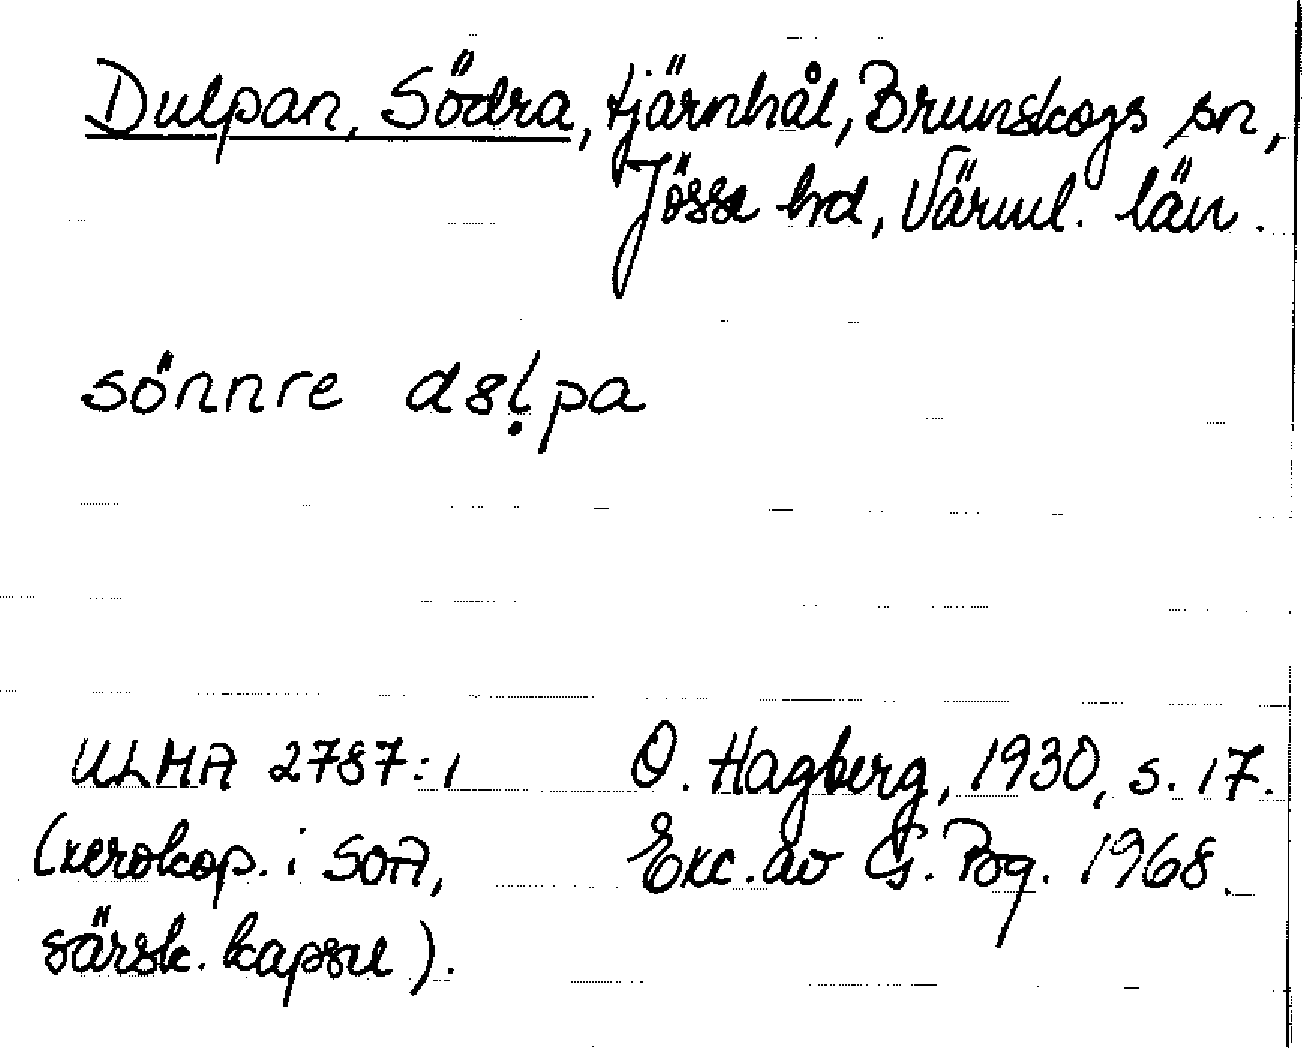 Dulpan, Södra, tjärnhål, Brunskogs sn,
Jösse hd, Värml. län.
sönnre dsl̩pa
ULMA 2787:1 O. Hagberg, 1930, s. 17.
(xerokop. i SOA, Exc. av G. Pog. 1968.
särsk. kapsel).